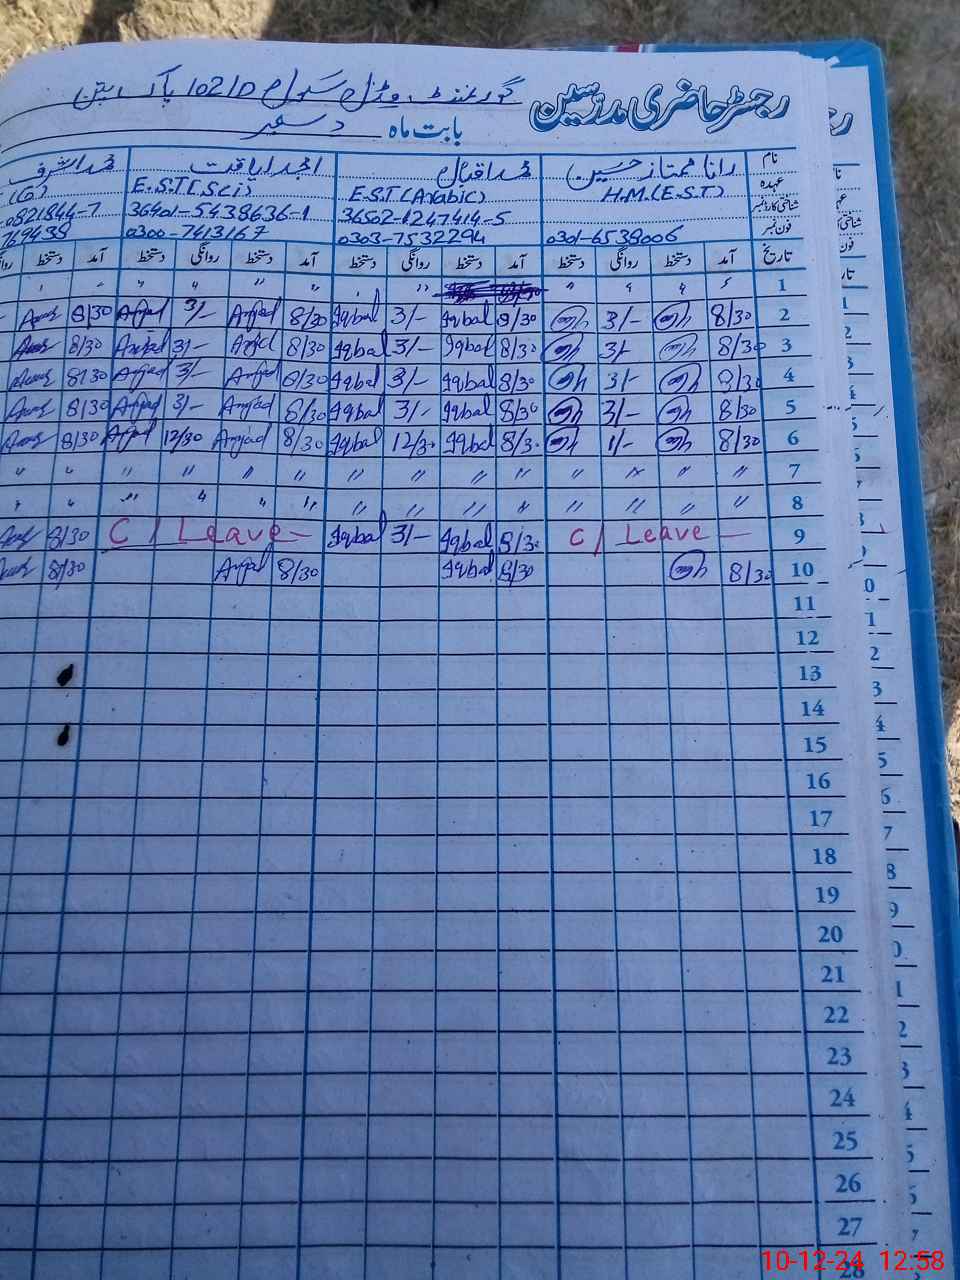 رجسٹر حاضری مدرسین گورنمنٹ مڈل سکول 102/D پاکپتن
بابت ماہ دسمبر
نام رانا ممتاز حسین محمد اقبال امجد لیاقت محمد اشرف
عہدہ H.M.(E.S.T) E.S.T(Arabic) E.S.T(Sci)
شناختی کارڈ نمبر 36502-1247414-5 36401-5438636-1 0821844-7
فون نمبر 0301-6538006 0303-7532294 0300-7413167 769438
تاریخ آمد دستخط روانگی دستخط آمد دستخط روانگی دستخط آمد دستخط روانگی دستخط آمد دستخط
1 " " " " " " " "
2 8/30 3/- 8/30 Iqbal 3/- Iqbal 8/30 Amjad 3/- Amjad 8/30
3 8/30 3/- 8/30 Iqbal 3/- Iqbal 8/30 Amjad 3/- Amjad 8/30
4 8/30 3/- 8/30 Iqbal 3/- Iqbal 8/30 Amjad 3/- Amjad 8/30
5 8/30 3/- 8/30 Iqbal 3/- Iqbal 8/30 Amjad 3/- Amjad 8/30
6 8/30 1/- 8/30 Iqbal 12/30 Iqbal 8/30 Amjad 12/30 Amjad 8/30
7 " " " " " " " " " " " " " "
8 " " " " " " " " " " " " " "
9 C/Leave 8/30 Iqbal 3/- Iqbal C/Leave 8/30
10 8/30 8/30 Iqbal 8/30 Amjad 8/30
11
12
13
14
15
16
17
18
19
20
21
22
23
24
25
26
27
28
10-12-24 12:58